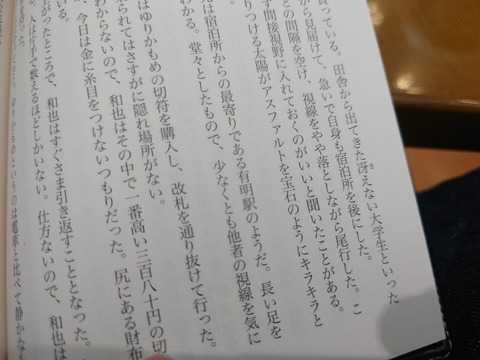 買っている。田舎から出てきた冴えない大学生といった
から見届けて、急いで自身も宿泊所を後にした。
との間隔を空け、視線をやや落としながら尾行した。こ
す間接視野に入れておくのがいいと聞いたことがある。
りつける太陽がアスファルトを宝石のようにキラキラと
先は宿泊所からの最寄りである有明駅のようだ。長い足を
わかる。堂々としたもので、少なくとも他者の視線を気に
はゆりかもめの切符を購入し、改札を通り抜けて行った。
られてはさすがに隠れ場所がない。
わからないので、和也はその中で一番高い三百八十円の切
、今日は金に糸目をつけないつもりだった。尻にある財布
いる。
がったところで、和也はすぐさま引き返すこととなった。
、人は片手で数えるほどしかいない。仕方ないので、和也は
ゆりかもめというのは電車と比べて静かなも